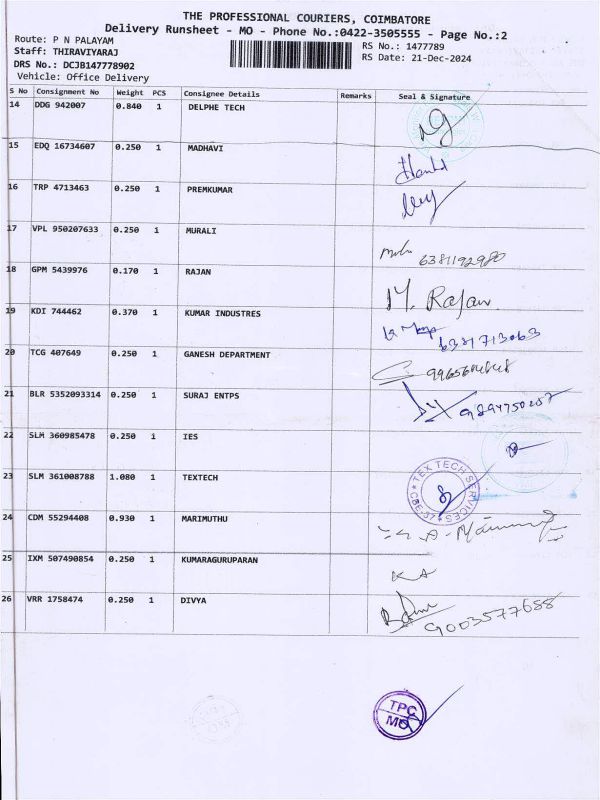 THE PROFESSIONAL COURIERS, COIMBATORE
Delivery Runsheet - MO - Phone No.:0422-3505555 - Page No.:2
Route: P N PALAYAM
Staff: THIRAVIYARAJ
DRS No.: DCJB147778902
Vehicle: Office Delivery
RS No.: 1477789
RS Date: 21-Dec-2024
S No Consignment No Weight PCS Consignee Details Remarks Seal & Signature
14 DDG 942007 0.840 1 DELPHE TECH
15 EDQ 16734607 0.250 1 MADHAVI
16 TRP 4713463 0.250 1 PREMKUMAR
17 VPL 950207633 0.250 1 MURALI 6381192980
18 GPM 5439976 0.170 1 RAJAN M. Rajan
19 KDI 744462 0.370 1 KUMAR INDUSTRES 6381713063
20 TCG 407649 0.250 1 GANESH DEPARTMENT
21 BLR 5352093314 0.250 1 SURAJ ENTPS
22 SLM 360985478 0.250 1 IES
23 SLM 361008788 1.080 1 TEXTECH TEX TECH SERVICES CBE-37
24 CDM 55294408 0.930 1 MARIMUTHU
25 IXM 507490854 0.250 1 KUMARAGURUPARAN KA
26 VRR 1758474 0.250 1 DIVYA 9003577688
TPC
MO